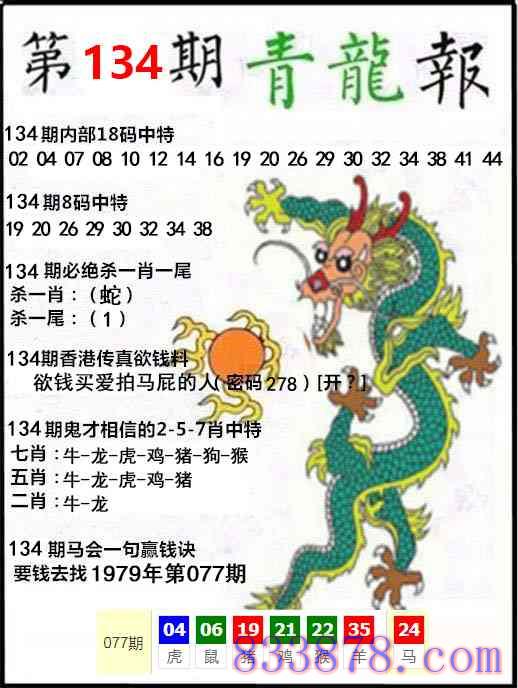 第134期 青龍報
134期内部18码中特
02 04 07 08 10 12 14 16 19 20 26 29 30 32 34 38 41 44
134期8码中特
19 20 26 29 30 32 34 38
134期必绝杀一肖一尾
杀一肖：（蛇）
杀一尾：（1）
134期香港传真欲钱料
欲钱买爱拍马屁的人（密码278）[开？]
134期鬼才相信的2-5-7肖中特
七肖：牛-龙-虎-鸡-猪-狗-猴
五肖：牛-龙-虎-鸡-猪
二肖：牛-龙
134期马会一句赢钱诀
要钱去找1979年第077期
077期 04 06 19 21 22 35 24
虎 鼠 猪 鸡 猴 羊 马
833878.com